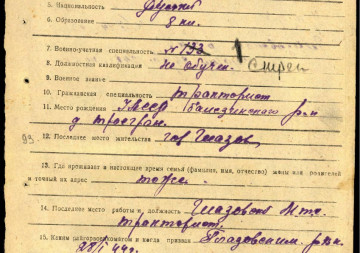 5. Национальность русский
6. Образование 3 кл.
7. Военно-учетная специальность № 133 1
8. Должностная квалификация не обучен.
9. Военное звание
10. Гражданская специальность тракторист
11. Место рождения УАССР Балезинского р-н
д.
93. 12. Последнее место жительства гор Глазов
13. Где проживает в настоящее время семья (фамилия, имя, отчество) жены или родителей
и точный их адрес тоже.
14. Последнее место работы и должность Глазовская Мтс.
тракторист.
15. Каким райгорвоенкоматом и когда призван Глазовским р.в.к.
44г.